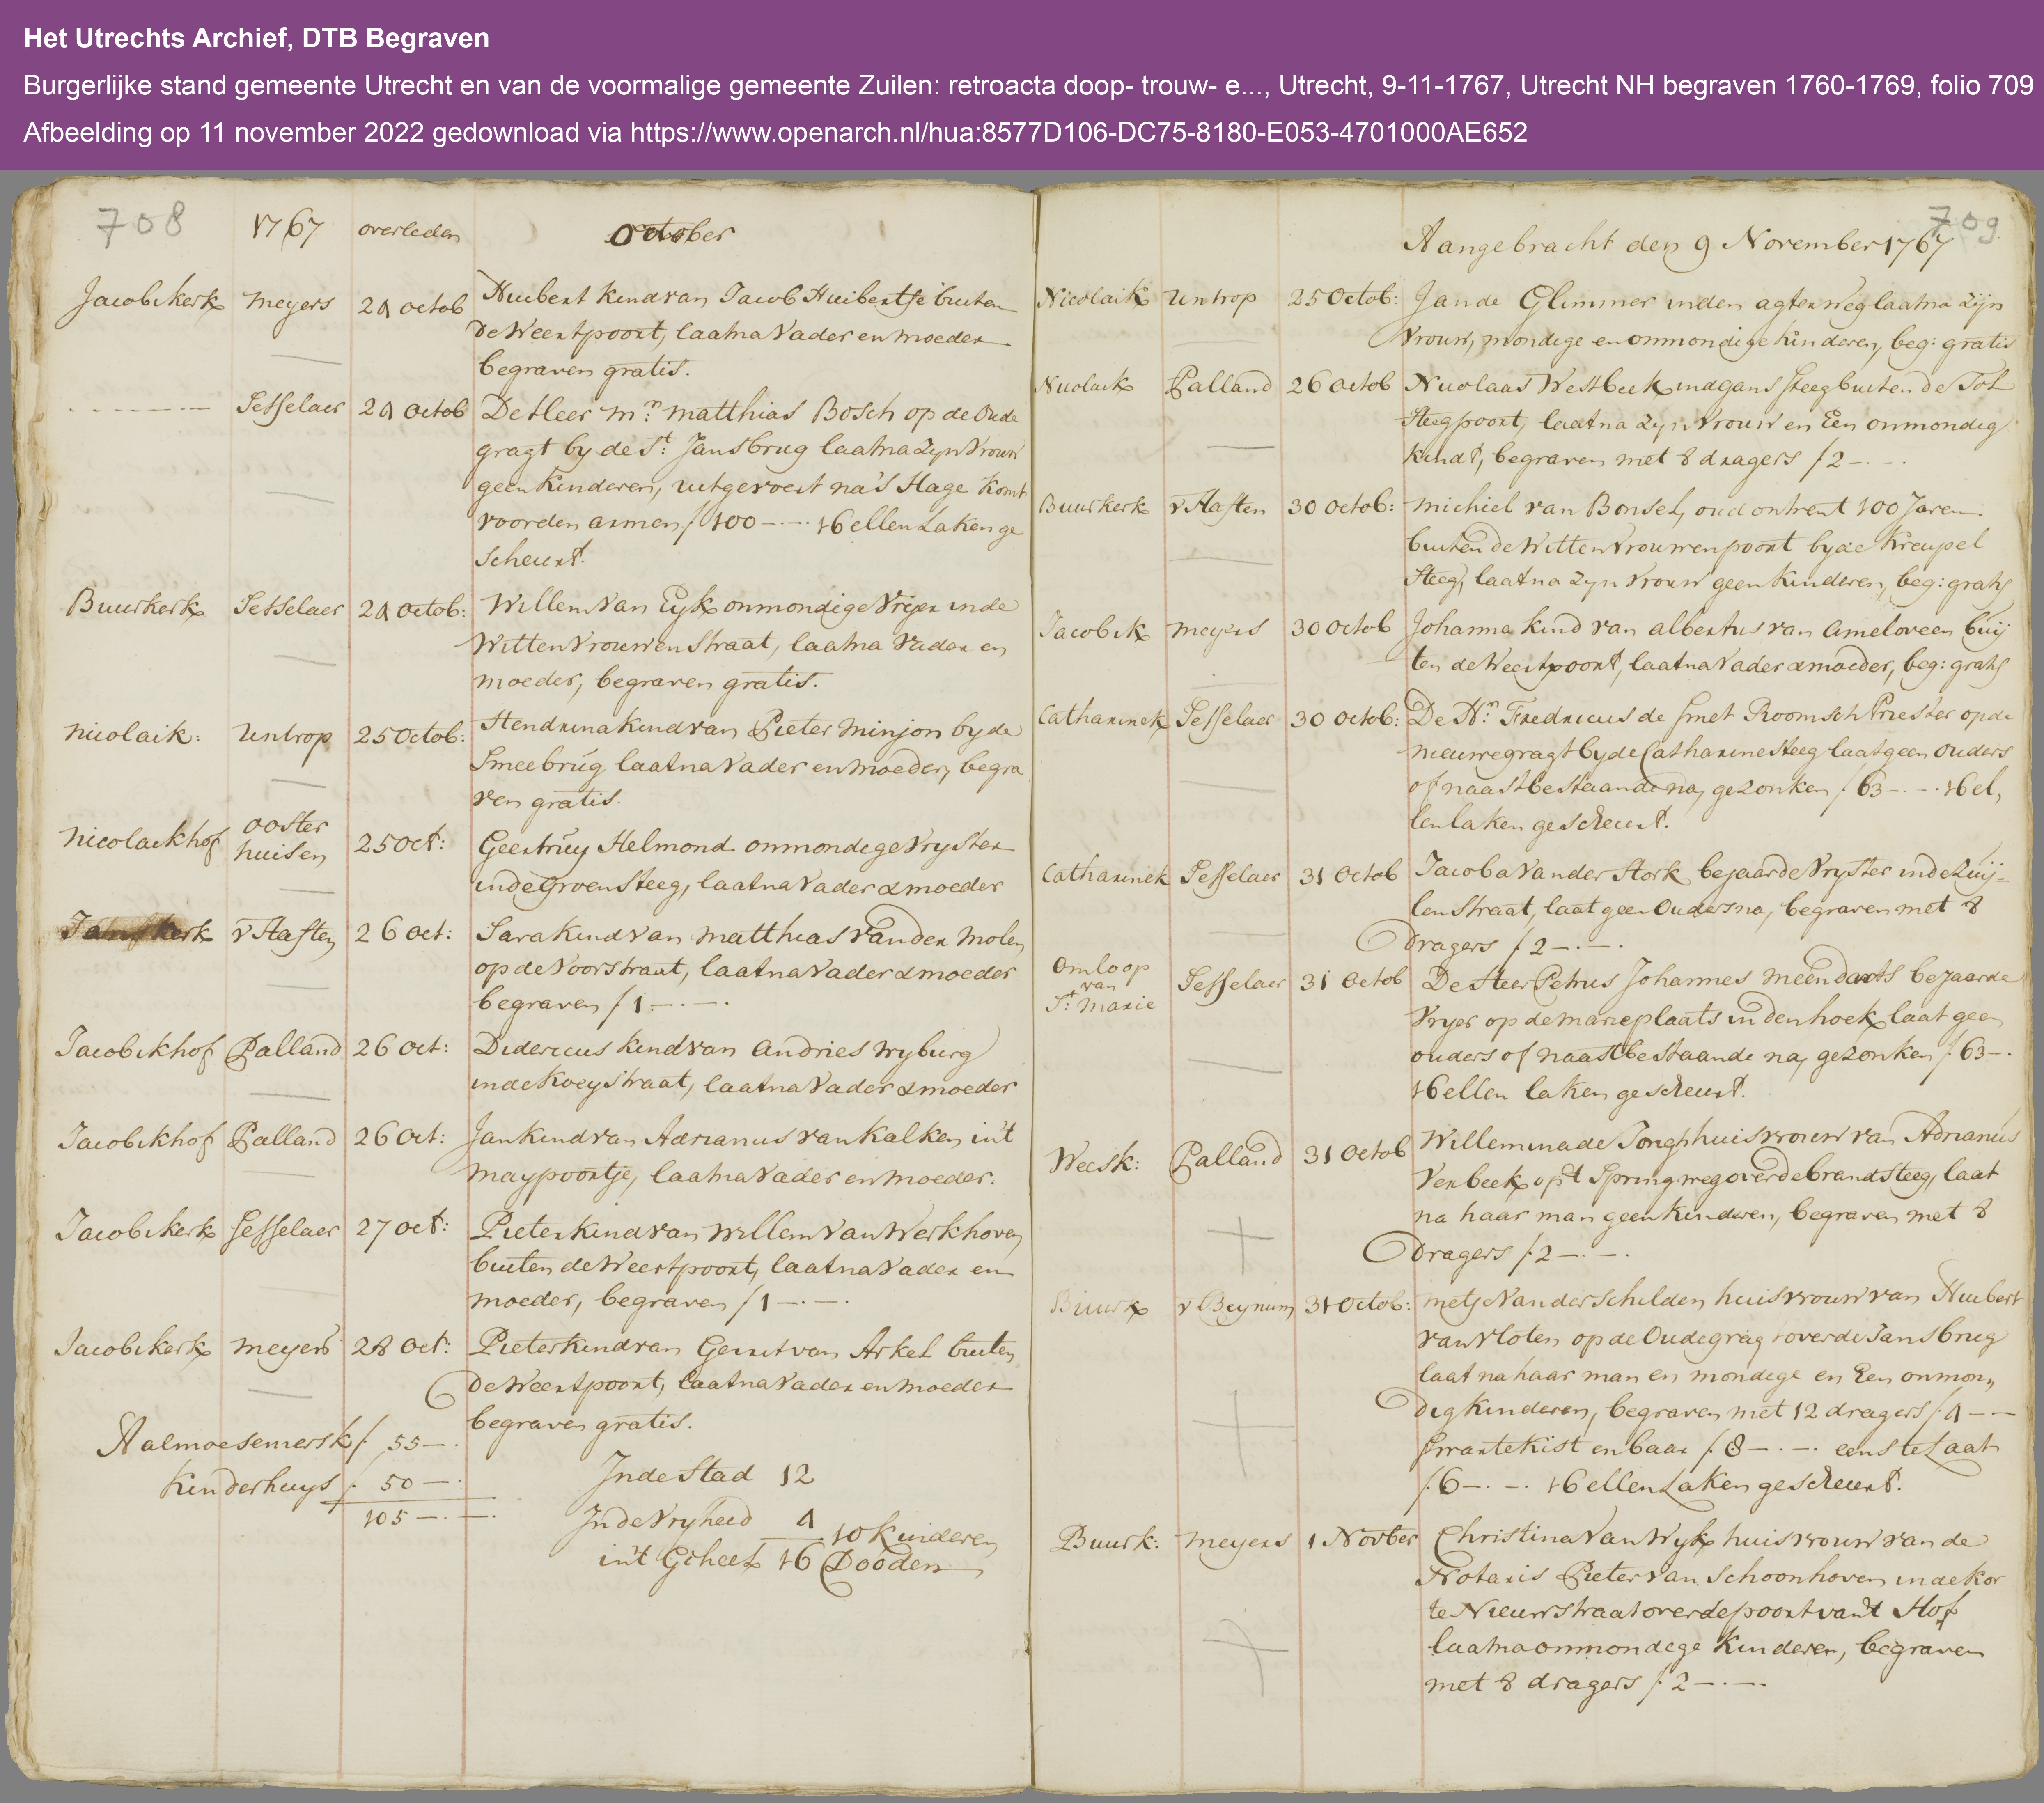 Het Utrechts Archief, DTB Begraven
Burgerlijke stand gemeente Utrecht en van de voormalige gemeente Zuilen: retroacta doop- trouw- e..., Utrecht, 9-11-1767, Utrecht NH begraven 1760-1769, folio 709
Afbeelding op 11 november 2022 gedownload via https://www.openarch.nl/hua:8577D106-DC75-8180-E053-4701000AE652
708 1767 overleden October
Jacobikerk meyers 24 octob Huibert kind van Jacob Huibertse buiten
de Weertpoort, laat na Vader en moeder
begraven gratis.
Sesselaer 24 octob De Heer mr. matthias Bosch op de Oude
gragt by de St: Jansbrug laat na zyn Vrouw
geen kinderen, uitgevoert na 's Hage komt
voor den armen f 100-.-. 16 ellen Laken ge
scheurt.
Buurkerk Sesselaer 24 octob: Willem Van Eyk onmondige Vryer in de
Witten Vrouwen Straat, laat na Vader en
moeder, begraven gratis.
nicolaik: Untrop 25 Octob: Hendrina kind van Pieter Minjon by de
Smeebrug laat na Vader en moeder, begra
ven gratis.
nicolaikhof ooster
huisen 25 Oct: Geertruy Helmond onmondige Vryster
in de Groen Steeg, laat na Vader & moeder
Janskerk v Haften 26 oct: Sara kind van matthias Van der Molen
op de Voorstraat, laat na Vader & moeder
begraven f 1-.-.
Jacobikhof Palland 26 oct: Didericus kind van Andries Wyburg
in de Koeystraat, laat na Vader & moeder
Jacobikhof Palland 26 Oct: Jan kind van Adrianus van Kalken in't
maypoortje, laat na Vader en moeder.
Jacobikerk Sesselaer 27 oct: Pieter kind van willem Van Werkhoven
buiten de Weertpoort, laat na Vader en
moeder, begraven f 1-.-.
Jacobikerk meyers 28 Oct: Pieter kind van Gerrit van Arkel buiten
de Weertpoort, laat na Vader en moeder
begraven gratis.
Aalmoeseniersk f 55-.
Kinderhuys f 50-.
105-.-.
In de Stad 12
In de Vryheid 4 10 kinderen
in't Geheel 16 Dooden
709
Aangebracht den 9 November 1767
Nicolaik Untrop 25 Octob: Jan de Glimmer in den agterweg laat na zijn
Vrouw, mondige en onmondige kinderen, beg: gratis
Nicolaik Palland 26 octob Nicolaas Westbeek in d gans steeg buiten de Tol
Steegpoort, laat na zyn Vrouw en Een onmondig
kindt, begraven met 8 dragers f 2-.-.
Buurkerk v Haften 30 octob: michiel van Bonsel, oud ontrent 100 Jaren
buiten de Witten Vrouwen poort by de Kreupel
Steeg, laat na zyn Vrouw geen kinderen, beg: gratis
Jacobik meyers 30 octob Johanna kind van albertus van Ameloveen buij
ten de Weertpoort, laat na Vader & moeder, beg: gratis
Catharinek Sesselaer 30 octob: De Hr. Fredricus de Smet Roomsch Priester op de
nieuwegragt by de Catharine steeg laat geen Ouders
of naastbestaande na, gezonken f 63-.-. 16 el,
len laken gescheurt.
Catharinek Sesselaer 31 octob Jacoba Vander Stork bejaarde Vryster in de Zuij=
len Straat, laat geen Ouders na, begraven met 8
Dragers f 2-.-.
Omloop
van
St. Marie Sesselaer 31 Octob De Heer Petrus Johannes Meendaerts bejaarde
Vryer op de marieplaats in den hoek laat geen
ouders of naastbestaande na, gezonken f 63-.
16 ellen laken gescheurt.
Weesk: Palland 31 Octob Willemina de Jongh huisvrouw van Adrianus
Verbeek op't Springweg over de brandsteeg, laat
na haar man geen kinderen, begraven met 8
Dragers f 2-.-.
Buurk v Beynum 31 Octob: metje Van der Schilden huisvrouw van Huibert
van Vloten op de Oudegragt over de Jansbrug
laat na haar man en mondige en Een onmon,,
dig kinderen, begraven met 12 dragers f 4-.-
Swarte kist en baar f 8-.-. eens te Laat
f 6-.-. 16 ellen Laken gescheurt.
Buurk: meyers 1 Novber Christina Van Wyk huisvrouw van de
Notaris Pieter van Schoonhoven in de Kor
te Nieuwstraat over de poort van't Hof
laat na onmondige kinderen, begraven
met 8 dragers f 2-.-.